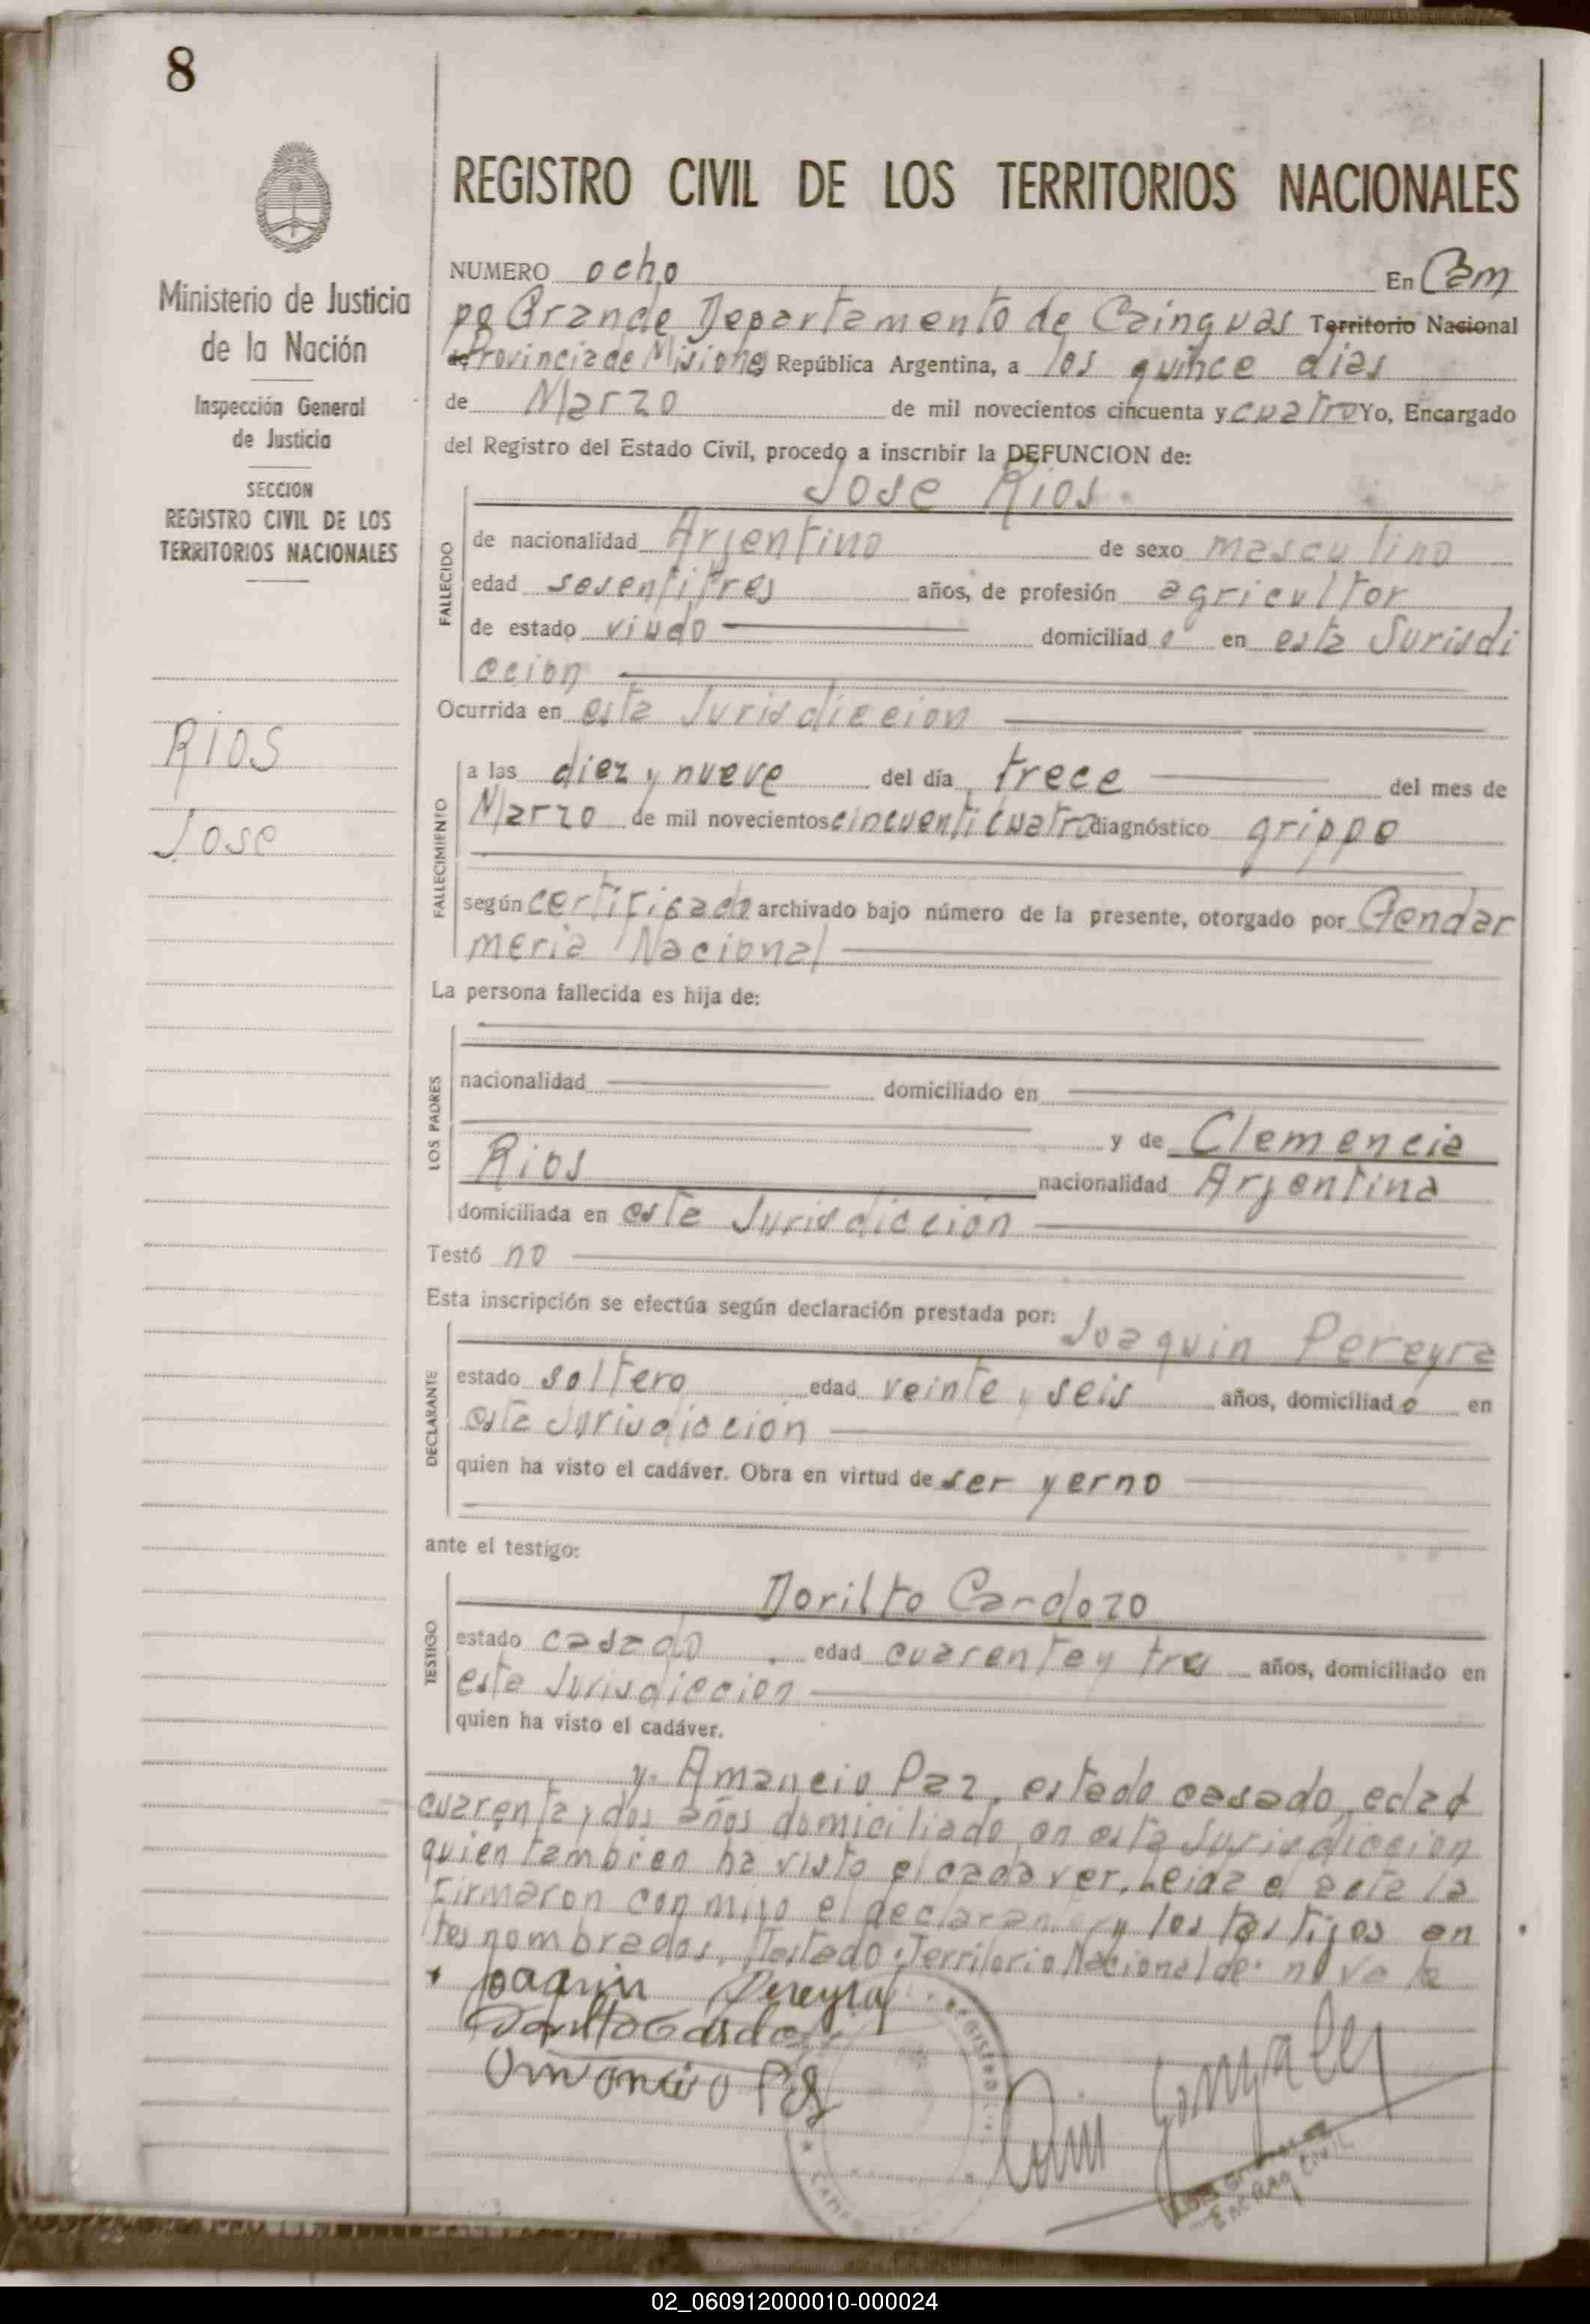 8
REGISTRO CIVIL DE LOS TERRITORIOS NACIONALES
Ministerio de Justicia
de la Nación
Inspección General
de Justicia
SECCION
REGISTRO CIVIL DE LOS
TERRITORIOS NACIONALES
RIOS
Jose
NUMERO ocho En Cam
po Grande Departamento de Cainguas Territorio Nacional
de Provincia de Misiones República Argentina, a los quince dias
de Marzo de mil novecientos cincuenta y cuatro Yo, Encargado
del Registro del Estado Civil, procedo a inscribir la DEFUNCION de:
Jose Rios.
FALLECIDO
de nacionalidad Argentino de sexo masculino
edad sesentitres años, de profesión agricultor
de estado viudo domiciliad o en esta Jurisdi
ccion
Ocurrida en esta Jurisdiccion
FALLECIMIENTO
a las diez y nueve del día trece del mes de
Marzo de mil novecientos cincuenticuatro diagnóstico grippe
según certificado archivado bajo número de la presente, otorgado por Gendar
meria Nacional
La persona fallecida es hija de:
LOS PADRES
nacionalidad domiciliado en
y de Clemencia
Rios nacionalidad Argentina
domiciliada en esta Jurisdiccion
Testó no
Esta inscripción se efectúa según declaración prestada por:
Joaquin Pereyra
DECLARANTE
estado soltero edad veinte y seis años, domiciliado en
esta Jurisdiccion
quien ha visto el cadáver. Obra en virtud de ser yerno
ante el testigo:
Dorilto Cardozo
TESTIGO
estado casado edad cuarenta y tres años, domiciliado en
esta Jurisdiccion
quien ha visto el cadáver.
y Amancio Paz, estado casado, edad
cuarenta y dos años domiciliado en esta Jurisdiccion
quien tambien ha visto el cadaver. Leida el acta la
firmaron conmigo el declarante y los testigos an
tes nombrados. Testado: Territorio Nacional de: no vale
Joaquin Pereyra
Gonzalez
02_060912000010-000024